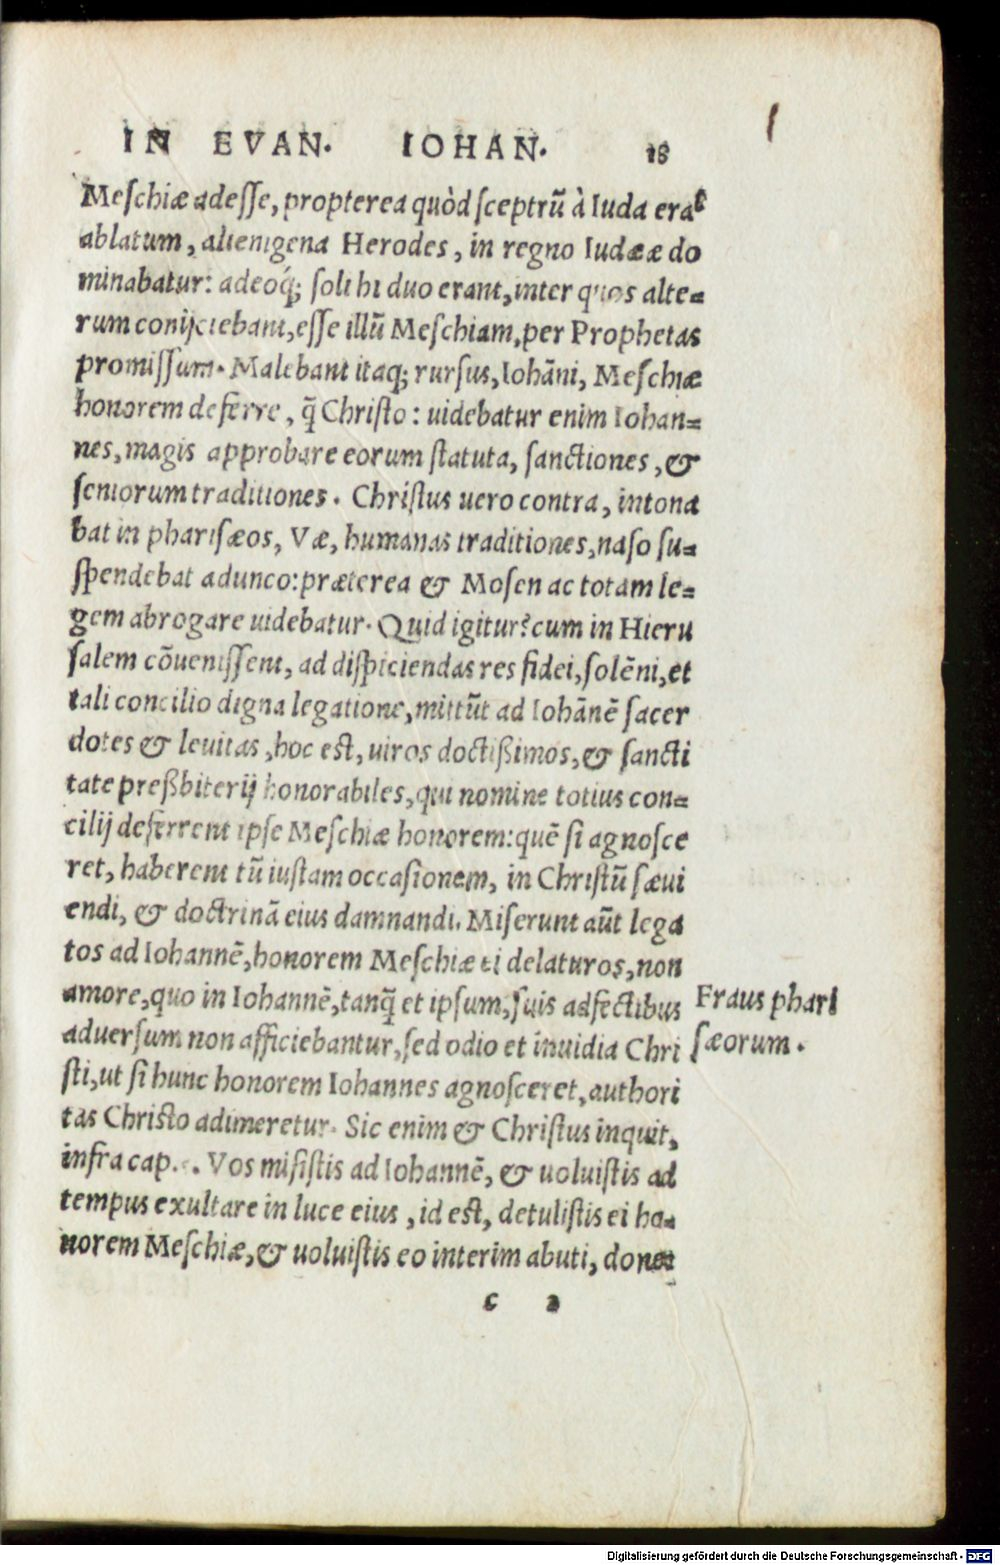 IN EVAN. IOHAN. 18
Meſchiæ adeſſe, propterea quòd ſceptrũ à Iuda erat
ablatum, alienigena Herodes, in regno Iudææ do
minabatur: adeoq́; ſoli hi duo erant, inter quos alte=
rum conijciebant, eſſe illũ Meſchiam, per Prophetas
promiſſum. Malebant itaq; rurſus, Iohãni, Meſchiæ
honorem deferre, q̃ Chriſto: uidebatur enim Iohan=
nes, magis approbare eorum ſtatuta, ſanctiones, &
ſeniorum traditiones. Chriſtus uero contra, intona
bat in phariſæos, Væ, humanas traditiones, naſo ſu=
ſpendebat adunco: præterea & Moſen ac totam le=
gem abrogare uidebatur. Quid igitur? cum in Hieru
ſalem cõueniſſent, ad diſpiciendas res fidei, ſolẽni, et
tali concilio digna legatione, mittũt ad Iohãnẽ ſacer
dotes & leuitas, hoc eſt, uiros doctißimos, & ſancti
tate preßbiterij honorabiles, qui nomine totius con=
cilij deferrent ipſe Meſchiæ honorem: quẽ ſi agnoſce
ret, haberent tũ iuſtam occaſionem, in Chriſtũ ſæui
endi, & doctrinã eius damnandi. Miſerunt aũt lega
tos ad Iohannẽ, honorem Meſchiæ ei delaturos, non
amore, quo in Iohannẽ, tanq̃ et ipſum, ſuis adfectibus
aduerſum non afficiebantur, ſed odio et inuidia Chri
ſti, ut ſi hunc honorem Iohannes agnoſceret, authori
tas Chriſto adimeretur. Sic enim & Chriſtus inquit,
infra cap. . Vos miſiſtis ad Iohannẽ, & uoluiſtis ad
tempus exultare in luce eius, id eſt, detuliſtis ei ho=
norem Meſchiæ, & uoluiſtis eo interim abuti, donec
c 2
Fraus phari
ſæorum.
Digitalisierung gefördert durch die Deutsche Forschungsgemeinschaft - DFG